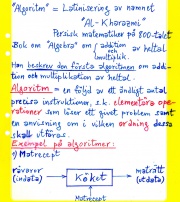 "Algoritm" = Latinisering av namnet
"AL-Kharazmi"
Persisk matematiker på 800-talet
Bok om "Algebra" om (addition och multiplik. av heltal
Han beskrev den första algoritmen om addi-
tion och multiplikation av heltal.
Algoritm = en följd av ett ändligt antal
precisa instruktioner, s.k. elementära oper-
ationer som löser ett givet problem samt
en anvisning om i vilken ordning dessa
skall utföras.
Exempel på algoritmer:
1) Matrecept
råvaror
(indata)
Köket
maträtt
(utdata)
Matrecept